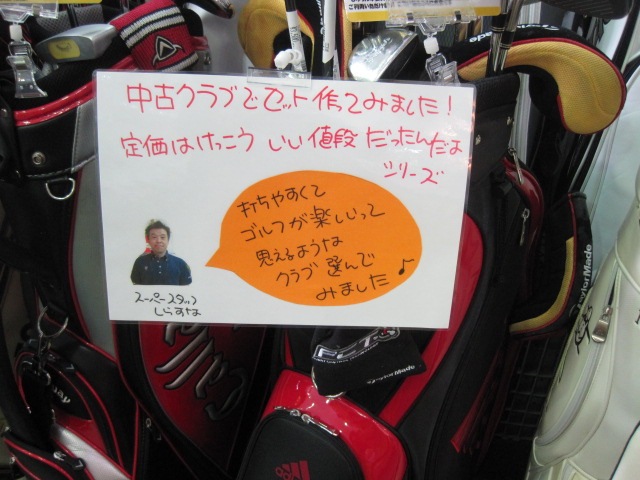 ご利用いただける
中古クラブでセット作ってみました!
定価はけっこういい値段だったんだよ
シリーズ
打ちやすくて
ゴルフが楽しいって
思えるような
クラブ選んで
みました♪
スーパースタッフ
しらすな
TaylorMade
TaylorMade
adidas